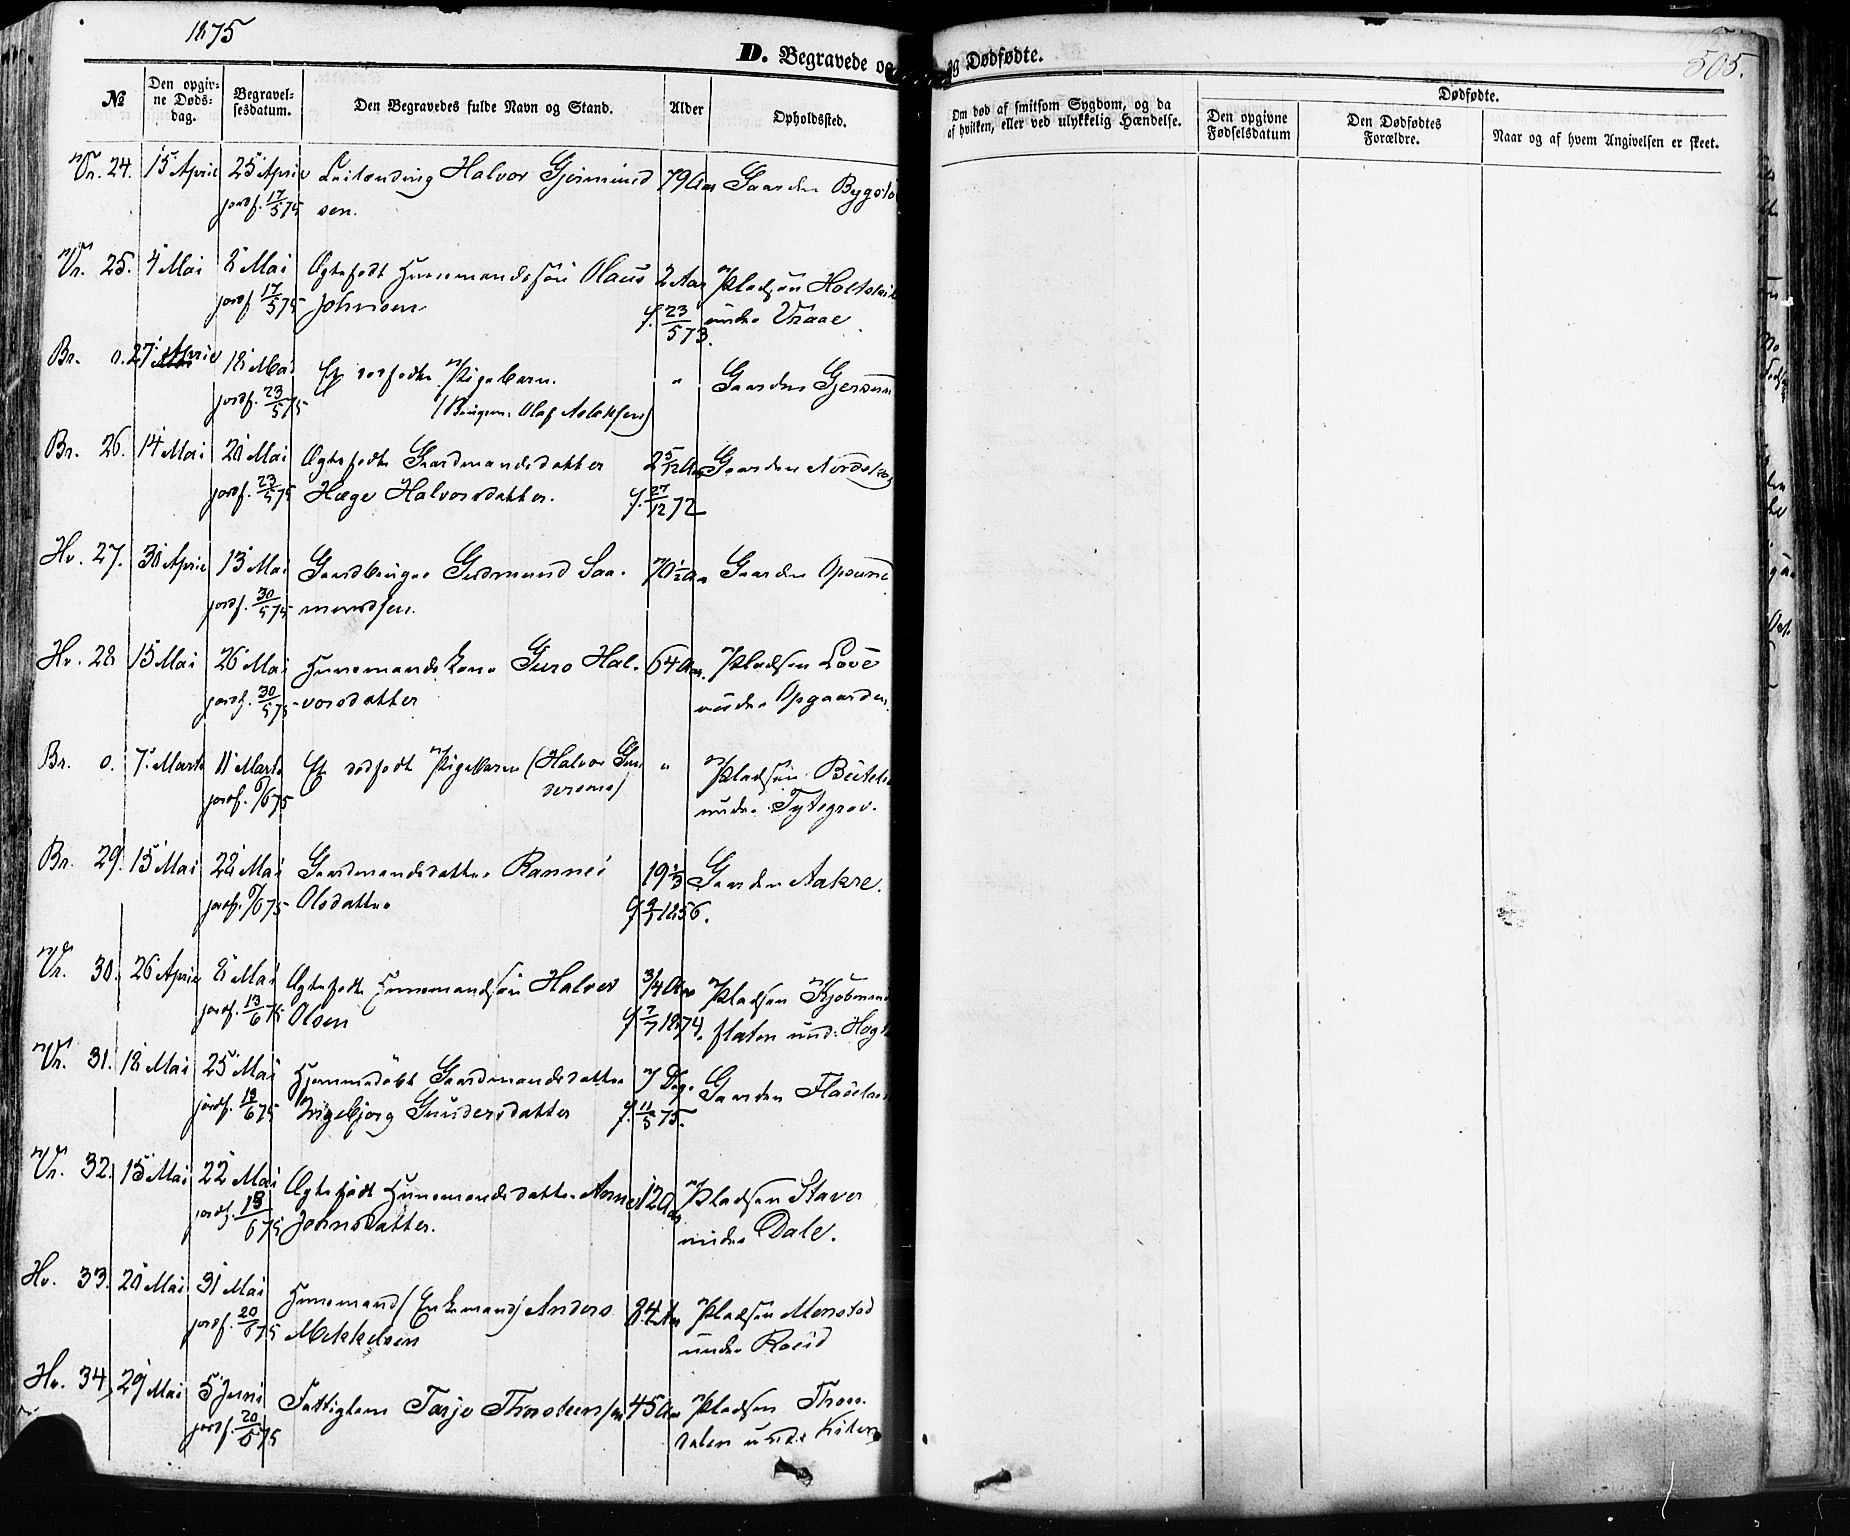 1875
505.
D. Begravede og Dødfødte.
№
Den opgiv-
ne Døds-
dag.
Begravel-
sesdatum.
Den Begravedes fulde Navn og Stand.
Alder
Opholdssted.
Om død af smitsom Sygdom, og da
af hvilken, eller ved ulykkelig Hændelse.
Dødfødte.
Den opgivne
Fødselsdatum
Den Dødfødtes
Forældre.
Naar og af hvem Angivelsen er skeet.
Vr. 24. 15 April 25 April Leilænding Halvor Gjermund 79 Aar Gaarden
jordf. 17/5 75 sen.
Vr. 25. 4 Mai 8 Mai Ægtefødt Huusmandssøn Olaus 2 Aar Pladsen
jordf 17/5 75 Johnsen f. 23/5 73. under Vraae
Br. 0. 27 April 18 Mai Et dødfødt Pigebarn. " Gaarden
jordf. 23/5 75 (Olaf Aslaksen)
Br. 26. 14 Mai 20 Mai Ægtefødt Gaardmandsdatter 2 5/12 Aar Gaarden Nordskog
jordf. 23/5 75 Hæge Halvorsdatter. f. 27/12 72
Hv. 27. 30 April 13 Mai Gaardbruger Gudmund Saa- 70 1/2 Aar Gaarden Opsund
jordf. 30/5 75 mundsen.
Hv. 28 15 Mai 26 Mai Huusmandskone Guro Hal- 64 Aar. Pladsen Love
jordf. 30/5 75 vorsdatter under Opgaarden.
Br. 0. 7 Marts 11 Marts Et dødfødt Pigebarn (Halvor Gun " Pladsen
jordf. 6/6 75 dersens) under Tytegrav.
Br. 29. 15 Mai 22 Mai Gaardmandsdatter Rannei 19 1/3 Gaarden Aakre.
jordf. 6/6 75 Olsdatter f 1856.
Vr. 30. 26 April 8 Mai Ægtefødt Huusmandssøn Halvor 3/4 Aar Pladsen Kjøbmand
jordf. 13/6 75 Olsen f 7/7 1874. flaten und:
Vr. 31. 18 Mai 25 Mai Hjemmedøbt Gaardmandsdatter 7 Dag. Gaarden
jordf. 13/6 75 Ingebjorg Gundersdatter f. 11/5 75.
Vr. 32. 15 Mai 22 Mai Ægtefødt Huusmandsdatter Anne 12 Aar Pladsen Staver
jordf. 13/6 75 Johnsdatter. under Dale.
Hv. 33. 20 Mai 31 Mai Huusmand (Enkemand) Anders 84 Aar Pladsen Monstad
jordf. 20/6 75 Mekkelsen under Roeid
Hv. 34 29 Mai 5 Juni Fattiglem Tarje Thorsteensen 45 Aar Pladsen Thom
jordf. 20/6 75 dalen under